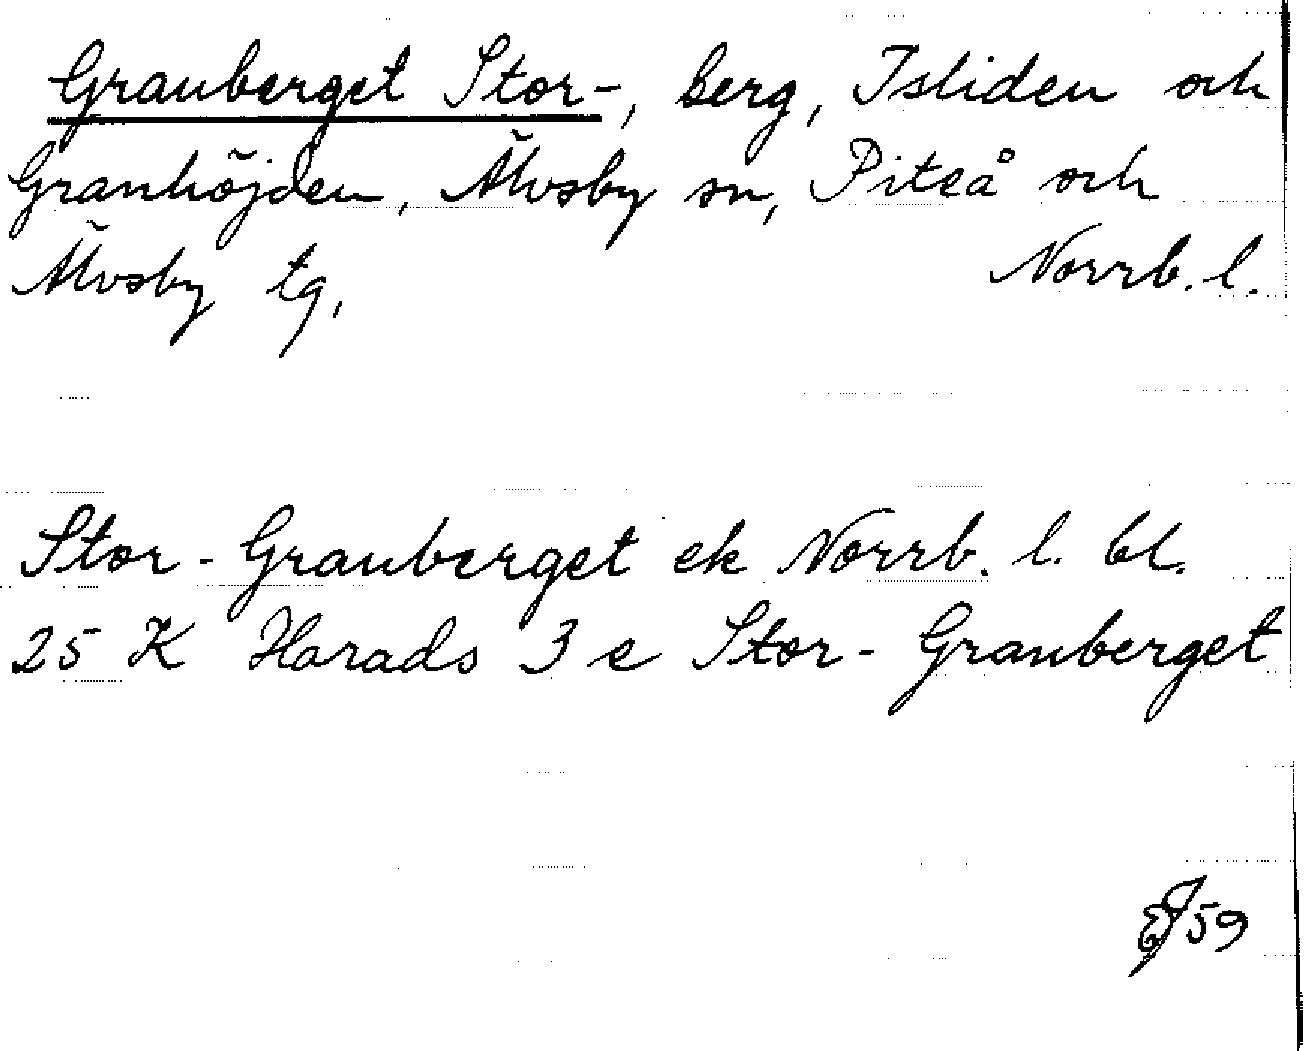 Grauberget Stor-, berg, Isliden och
Granhöjden, Älvsby sn, Piteå och
Älvsby tg, Norrb. l.
Stor-Grauberget ek Norrb. l. bl.
25 K Harads 3 e Stor-Grauberget
59